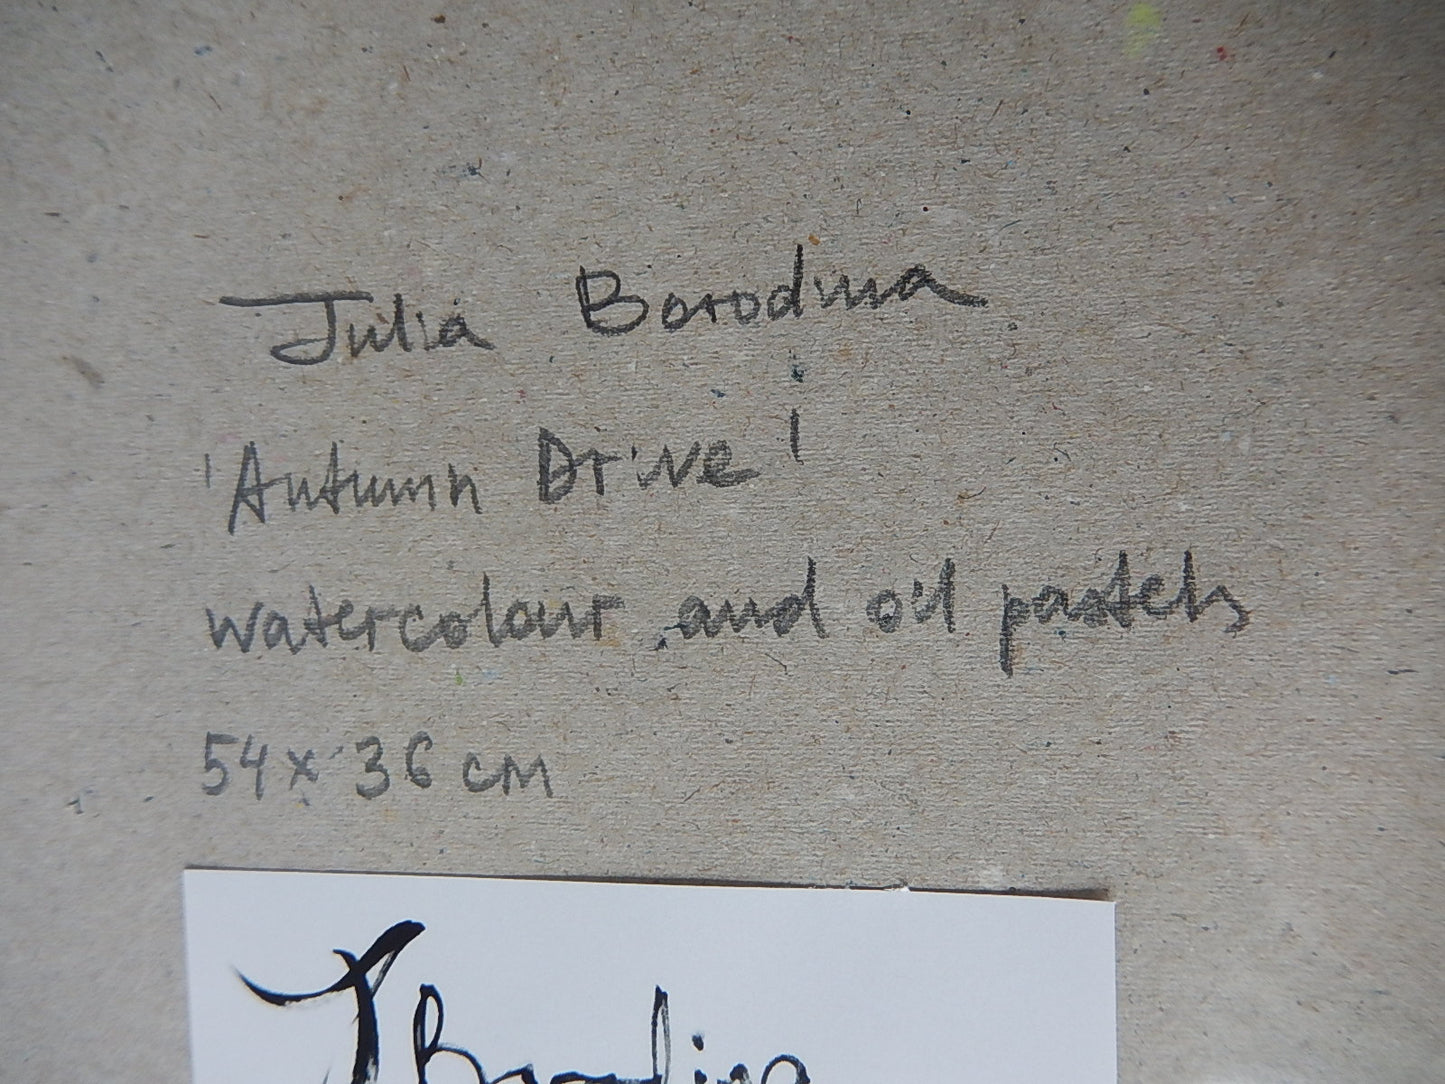 Julia Borodina
'Autumn Drive'
watercolour and oil pastels
54x36 cm
J Borodina